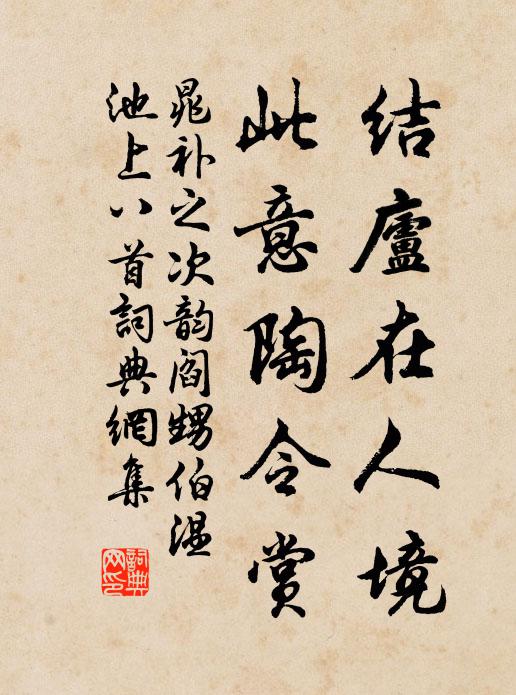 结廬在人境
此意陶令赏
晁补之次韵阎甥伯温
池上八首詞典網集
詞典
网印